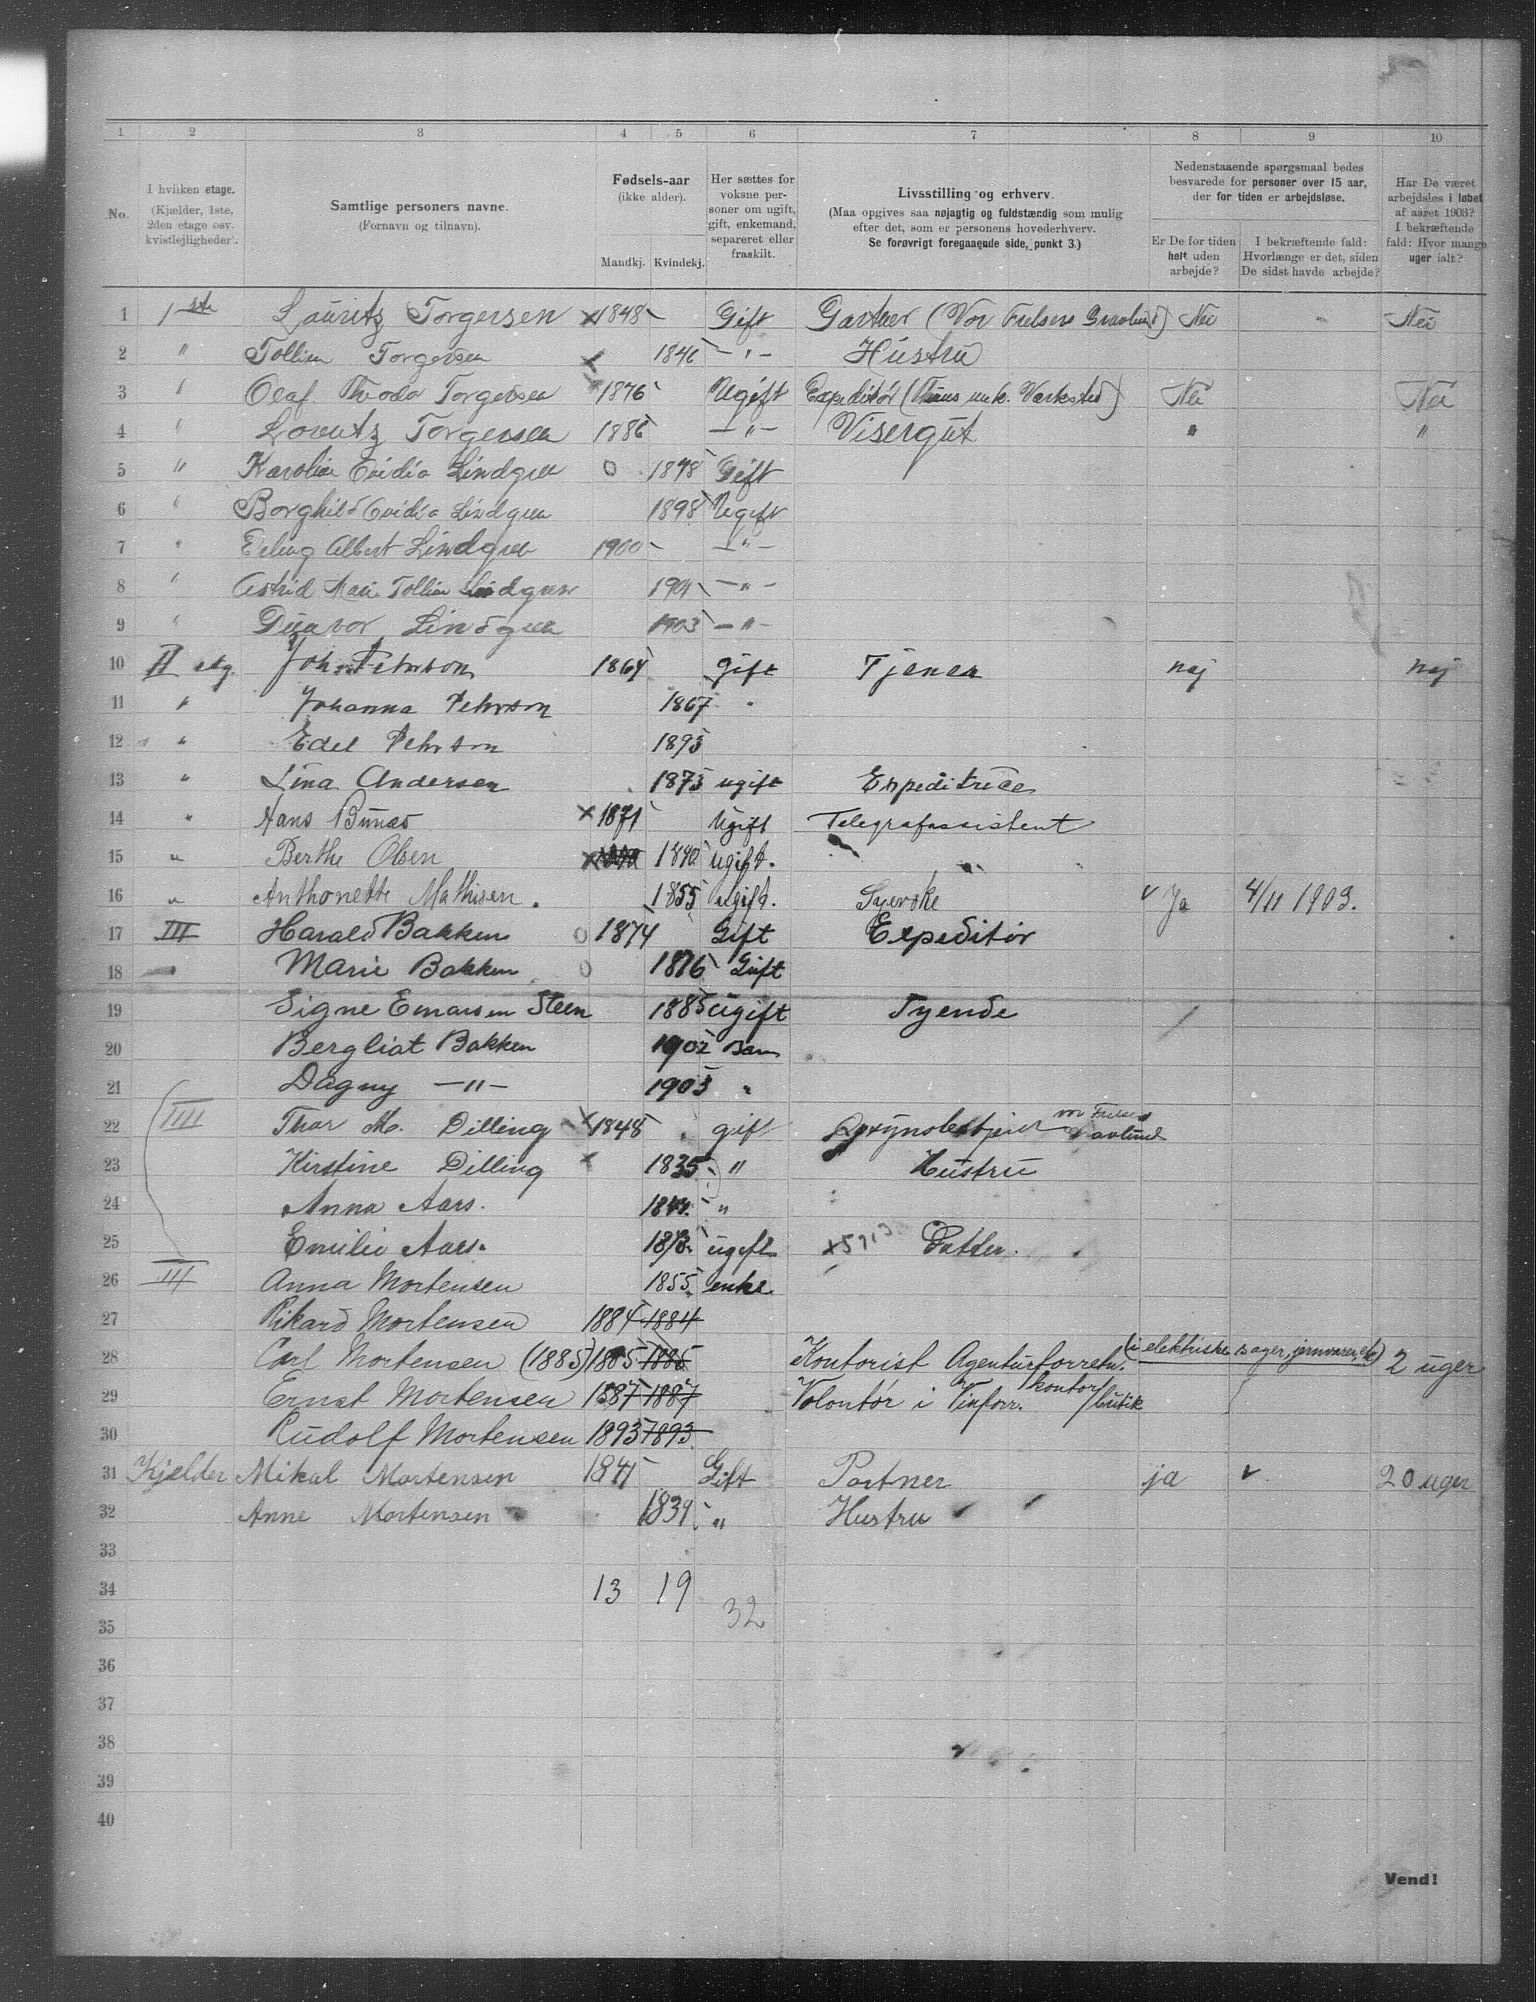 1 2 3 4 5 6 7 8 9 10
No.
I hvilken etage.
(Kjælder, 1ste,
2den etage osv.
kvistlejligheder).
Samtlige personers navne.
(Fornavn og tilnavn).
Fødsels-aar
(ikke alder).
Mandkj. Kvindekj.
Her sættes for
voksne per-
soner om ugift,
gift, enkemand,
separeret eller
fraskilt.
Livsstilling og erhverv.
(Maa opgives saa nøjagtig og fuldstændig som mulig
efter det, som er personens hovederhverv.
Se forøvrigt foregaaende side, punkt 3.)
Nedenstaaende spørgsmaal bedes
besvarede for personer over 15 aar,
der for tiden er arbejdsløse.
Er De for tiden
helt uden
arbejde?
I bekræftende fald:
Hvorlænge er det, siden
De sidst havde arbejde?
Har De været
arbejdsløs i løbet
af aaret 1903?
I bekræftende
fald: Hvor mange
uger ialt?
1 1ste Lauritz Torgersen x 1848 Gift Gartner (Vor Frelsers Gravlund) Nei " Nei
2 " Torgersen x 1846 — " — Hustru
3 " Olaf Torgersen x 1876 Ugift Expeditør ( mek. Værksted) Nei Nei
4 " Lorentz Torgersen 1886 — " — Visergut " "
5 " Karoline Ovidia Lindgren 0 1878 Gift
6 " Borghild Ovidia Lindgren 1898 Ugift
7 " Erling Albert Lindgren 1900 — " —
8 " Astrid Marie Lindgren 1901 — " —
9 " Lindgren 1903 — " —
10 II etg. John Pehrson 1864 Gift Tjener nej nej
11 " Johanna Pehrson 1867 "
12 " Edel Pehrson 1895
13 " Lina Andersen 1875 ugift Expeditrice
14 " Hans x 1871 Ugift Telegrafassistent
15 " Berthe Olsen x 1840 ugift. "
16 " Anthonette Mathisen. 1855 ugift. Syerske Ja 4/11 1903.
17 III Harald Bakken 0 1874 Gift Expeditør
18 " Marie Bakken 0 1876 Gift
19 Signe Steen 1885 Ugift Tyende
20 Bergliot Bakken 1902 Barn
21 Dagny — " — 1903 "
22 IIII Thor M. Dilling x 1848 gift vor Frelsers
Gravlund
23 Kirstine Dilling x 1835 " Hustru
24 Anna Aars. "
25 Emilie Aars. ugift Datter.
26 III Anna Mortensen 1855 enke
27 Rikard Mortensen 1884 1884
28 Carl Mortensen (1885) 1885 1885 Kontorist Agenturforretn. (i elektriske sager, jernvarer, etc) 2 uger
29 Ernst Mortensen 1887 1887 Volontør i Vinforr. kontor/butik
30 Rudolf Mortensen 1893 1893
31 Kjælder Mikal Mortensen 1841 Gift Portner ja 20 uger
32 Anne Mortensen 1839 " Hustru
33
34 13 19
35 32
36
37
38
39
40
Vend!